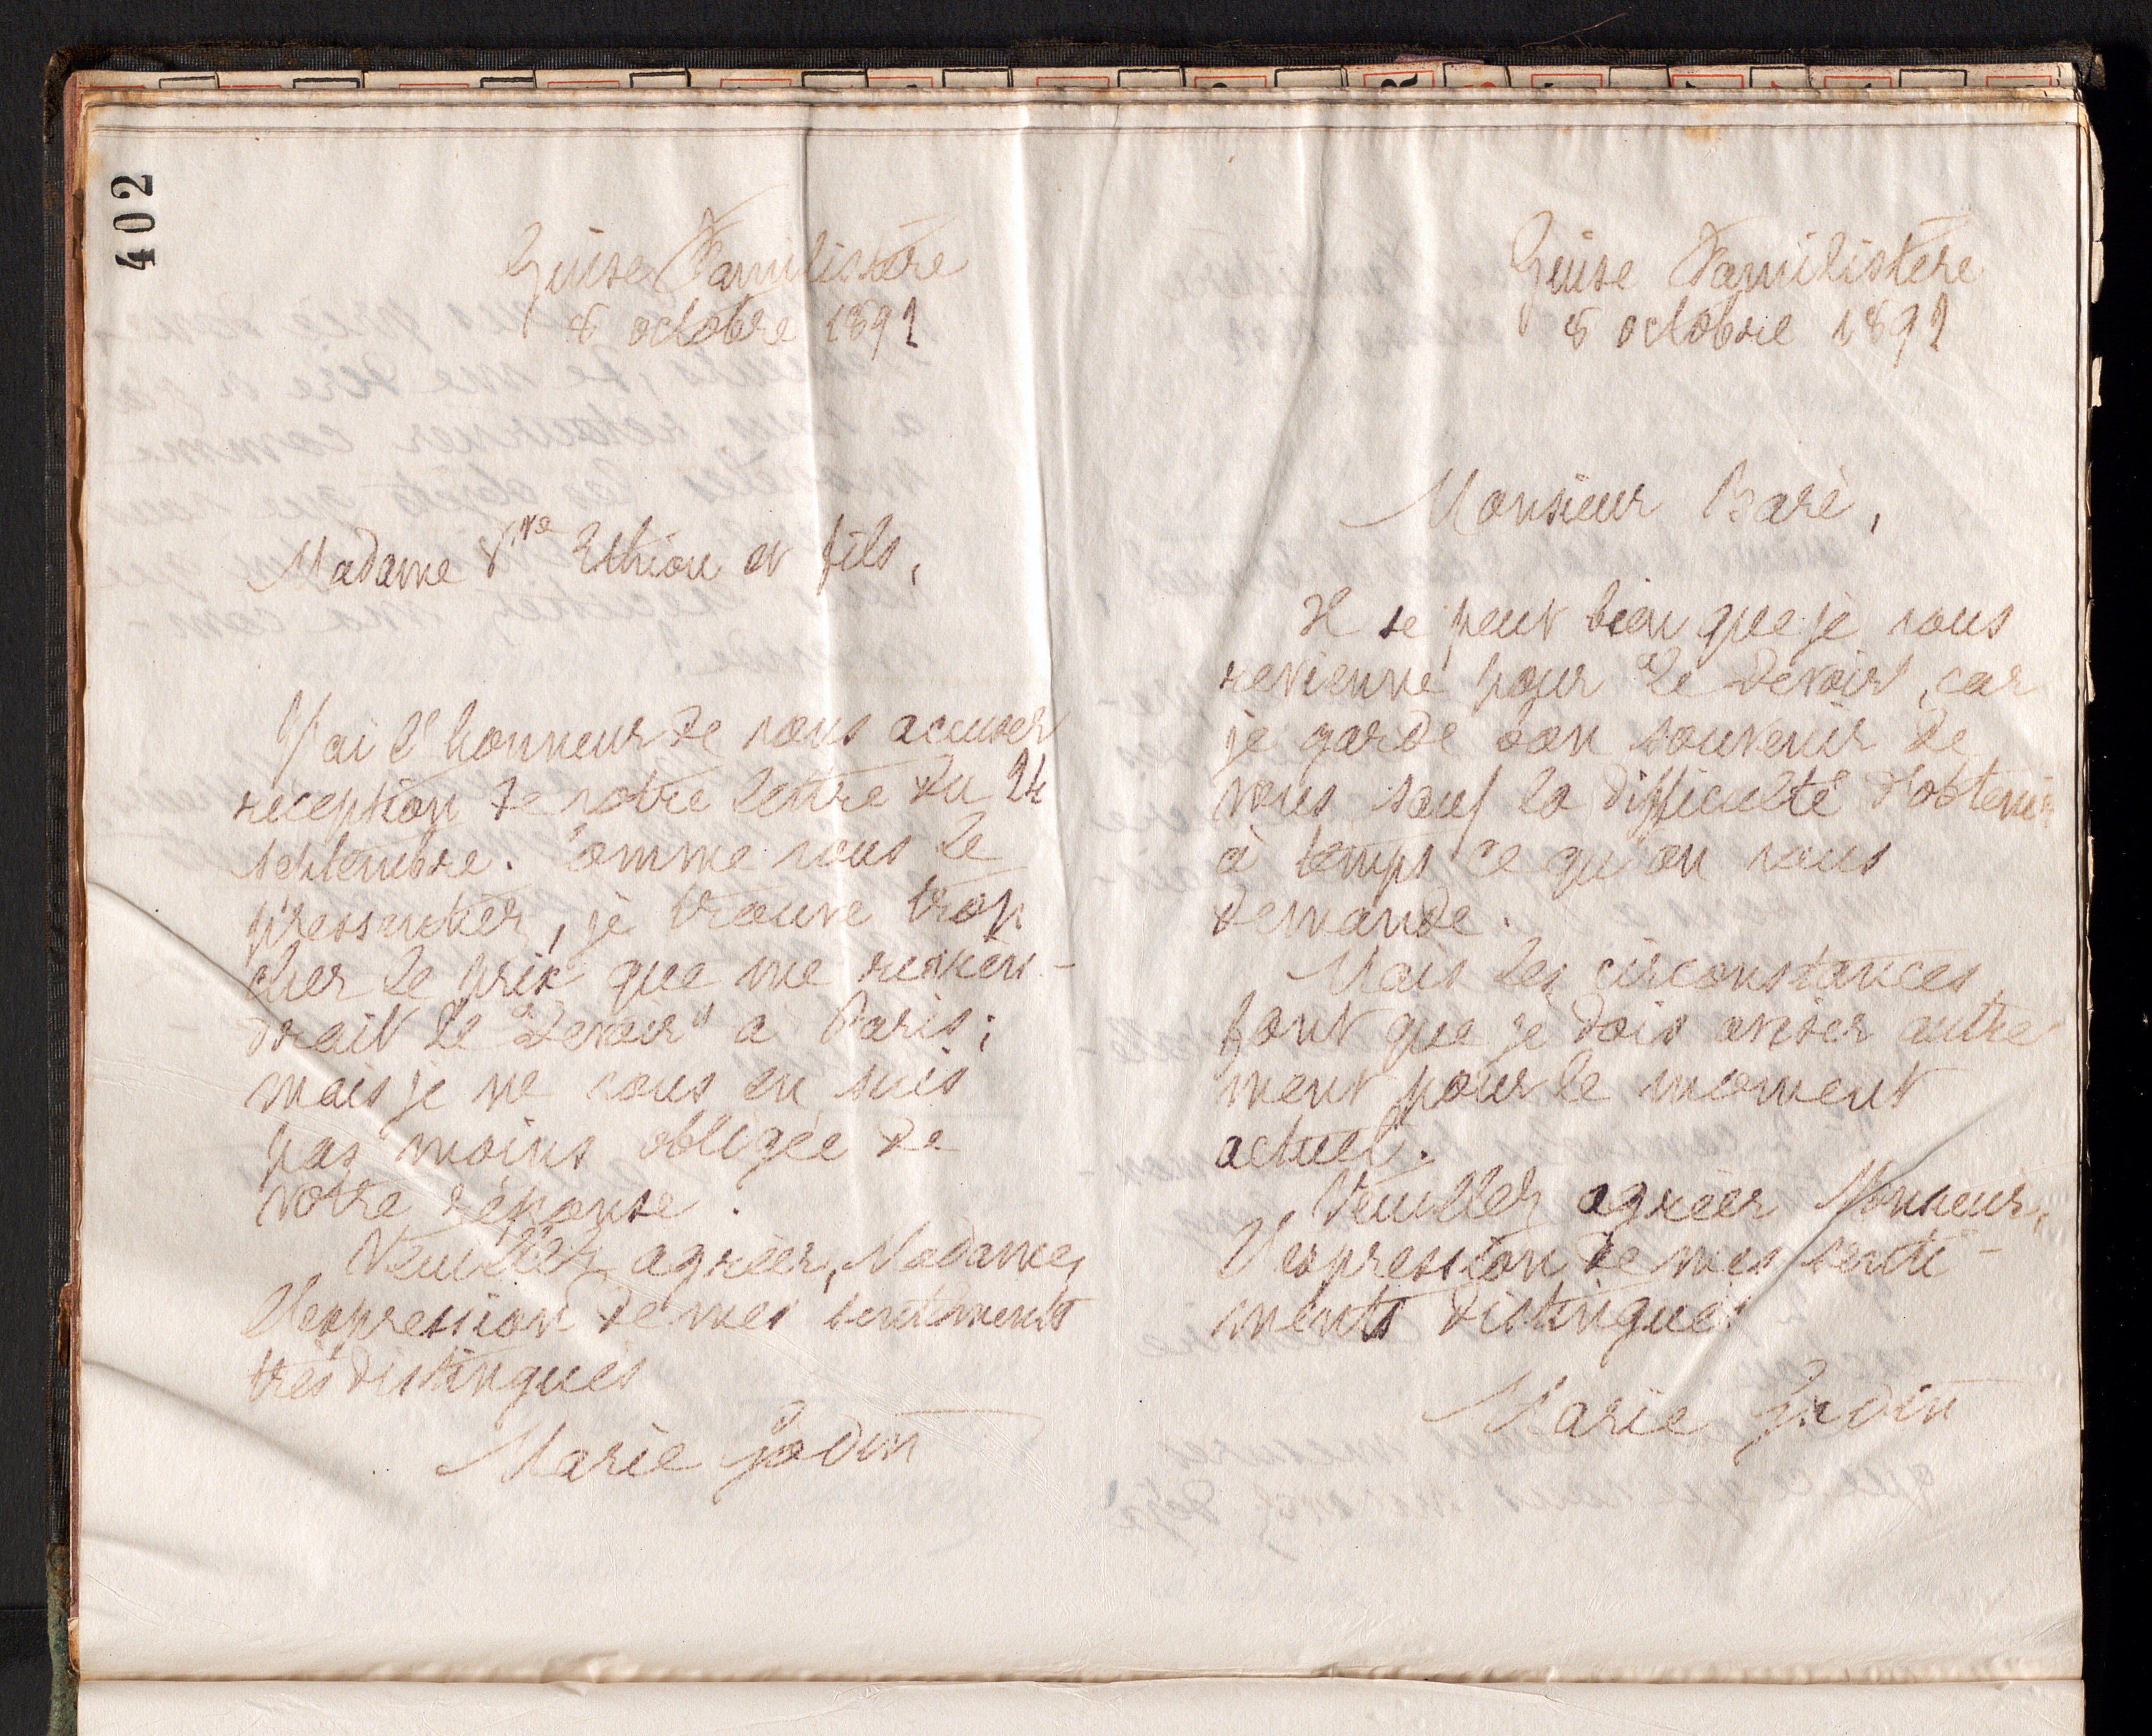 402
Guise Familistère
8 octobre 1892
Madame Vve Ethiou et fils,
J'ai l'honneur de vous accuser
réception de votre lettre du 24
septembre. Comme vous le
pressentier, je trouve trop
cher le prix que me revien-
drait le "Devoir" à Paris;
mais je ne vous en suis
pas moins obligée de
votre réponse.
Veuillez agréer, Madame,
l'expression de mes sentiments
très distingués
Marie Godin
Guise Familistère
8 octobre 1892
Monsieur Baré,
Il se peut bien que je vous
revienne pour "le Devoir", car
je garde bon souvenir de
vous sauf la difficulté d'obtenir
à temps ce qu'on vous
demande.
Mais les circonstances
font que je dois aviser autre
ment pour le moment
actuel.
Veuillez agréer Monsieur,
l'expression de mes senti-
ments distingués
Marie Godin